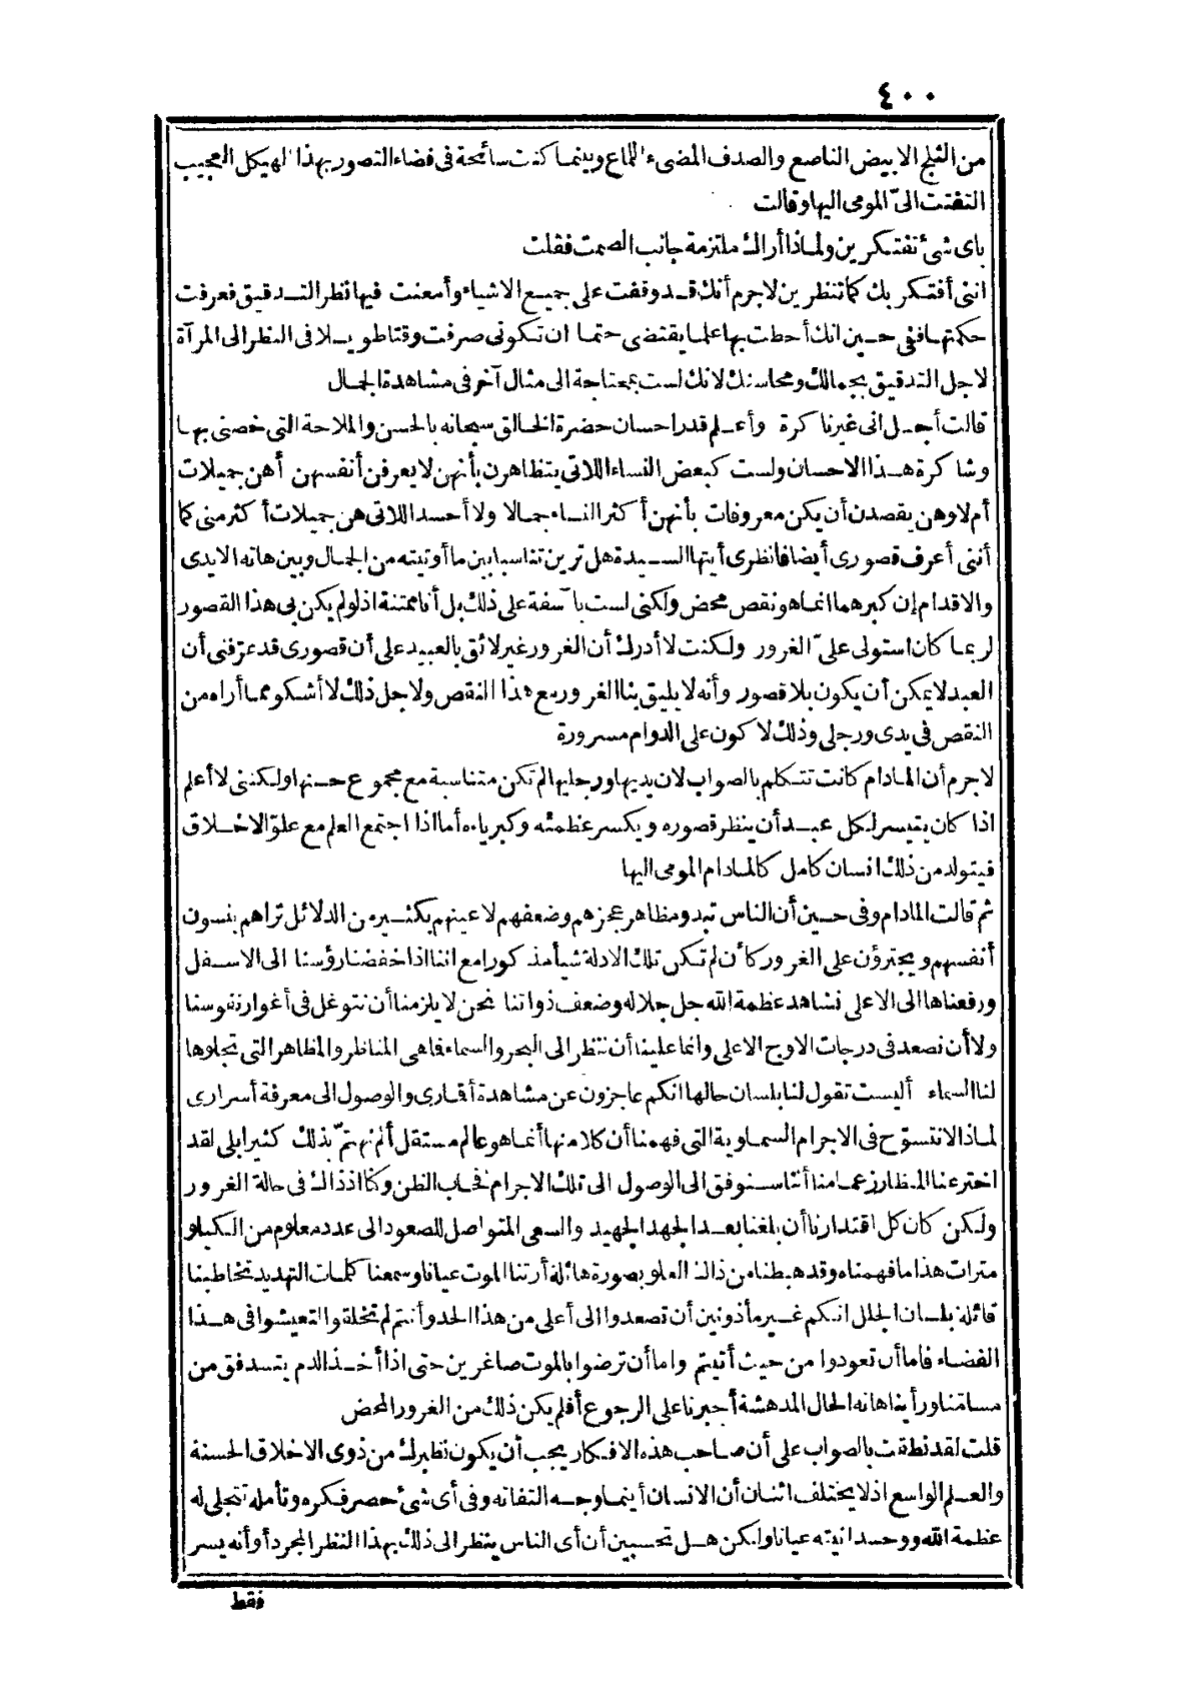 ٤٠٠
من الثلج الابيض الناصع والصدف المضىء اللماع وبينما كنت سائحة فى فضاء التصور بهذا الهيكل العجيب
التفتت الىّ المومى اليها وقالت
باى شئ تفتكرين ولماذا أراك ملتزمة جانب الصمت فقلت
اننى أفتكر بك كما تنظرين لاجرم أنك قد وقفت على جميع الاشياء وأمعنت فيها نظر التدقيق فعرفت
حكمتها ففى حين انك أحطت بها علما يقتضى حتما ان تكونى صرفت وقتا طويلا فى النظر الى المرآة
لاجل التدقيق بجمالك ومحاسنك لانك لست بمحتاجة الى مثال آخر فى مشاهدة الجمال
قالت أجل انى غير ناكرة وأعلم قدر احسان حضرة الخالق سبحانه بالحسن والملاحة التى خصنى بها
وشاكرة هذا الاحسان ولست كبعض النساء اللاتى يتظاهرن بأنهن لا يعرفن أنفسهن أهن جميلات
أم لا وهن يقصدن أن يكن معروفات بأنهن أكثر النساء جمالا ولا أحسد اللاتى هن جميلات أكثر منى كما
أننى أعرف قصورى أيضا فانظرى أيتها السيدة هل ترين تناسبا بين ما أوتيته من الجمال وبين هاته الايدى
والاقدام إن كبرهما انما هو نقص محض ولكنى لست بآسفة على ذلك بل أنا ممتنة اذ لو لم يكن بى هذا القصور
لربما كان استولى علىّ الغرور ولكنت لا أدرك أن الغرور غير لائق بالعبيد على أن قصورى قد عرفنى أن
العبد لا يمكن أن يكون بلا قصور وأنه لا يليق بنا الغرور مع هذا النقص ولاجل ذلك لا أشكو مما أراه من
النقص فى يدى ورجلى وذلك لاكون على الدوام مسرورة
لاجرم أن المادام كانت تتكلم بالصواب لان يديها ورجليها لم تكن متناسبة مع مجموع حسنها ولكننى لا أعلم
اذا كان يتيسر لكل عبد أن ينظر قصوره ويكسر عظمته وكبرياءه أما اذا اجتمع العلم مع علوّ الاخلاق
فيتولد من ذلك انسان كامل كالمادام المومى اليها
ثم قالت المادام وفى حين أن الناس تبدو مظاهر عجزهم وضعفهم لاعينهم بكثير من الدلائل تراهم ينسون
أنفسهم ويجترؤن على الغرور كأن لم تكن تلك الادلة شيأ مذكورا مع اننا اذا خفضنا رؤسنا الى الاسفل
ورفعناها الى الاعلى نشاهد عظمة الله جل جلاله وضعف ذواتنا نحن لا يلزمنا أن نتوغل فى أغوار نفوسنا
ولا أن نصعد فى درجات الاوج الاعلى وانما علينا أن ننظر الى البحر والسماء فما هى المناظر والمظاهر التى تجلوها
لنا السماء أليست تقول لنا بلسان حالها انكم عاجزون عن مشاهدة أقمارى والوصول الى معرفة أسرارى
لماذا لا نتسوّح فى الاجرام السماوية التى فهمنا أن كلا منها أنما هو عالم مستقل ألم نهتمّ بذلك كثيرا بلى لقد
اخترعنا المنظار زعما منا أننا سنوفق الى الوصول الى تلك الاجرام فخاب الظن وكنا اذ ذاك فى حالة الغرور
ولكن كان كل اقتدارنا أن بلغنا بعد الجهد الجهيد والسعى المتواصل للصعود الى عدد معلوم من الكيلو
مترات هذا ما فهمناه وقد هبطنا من ذاك العلو بصورة هائلة أرتنا الموت عيانا وسمعنا كلمات التهديد تخاطبنا
قائلة بلسان الجلل انكم غير مأذونين أن تصعدوا الى أعلى من هذا الحد وأنتم لم تخلقوا لتعيشوا فى هذا
الفضاء فاما أن تعودوا من حيث أتيتم واما أن ترضوا بالموت صاغرين حتى اذا أخذ الدم يتسدفق من
مساتنا ورأينا هاته الحال المدهشة أجبرنا على الرجوع أفلم يكن ذلك من الغرور المحض
قلت لقد نطقت بالصواب على أن صاحب هذه الافكار يجب أن يكون نظيرك من ذوى الاخلاق الحسنة
والعلم الواسع اذ لا يختلف اثنان أن الانسان أينما وجه التفاته وفى أى شئ حصر فكره وتأمله تتجلى له
عظمة الله ووحدانيته عيانا ولكن هل تحسبين أن أى الناس ينظر الى ذلك بهذا النظر المجرد أو أنه يسر
فقط